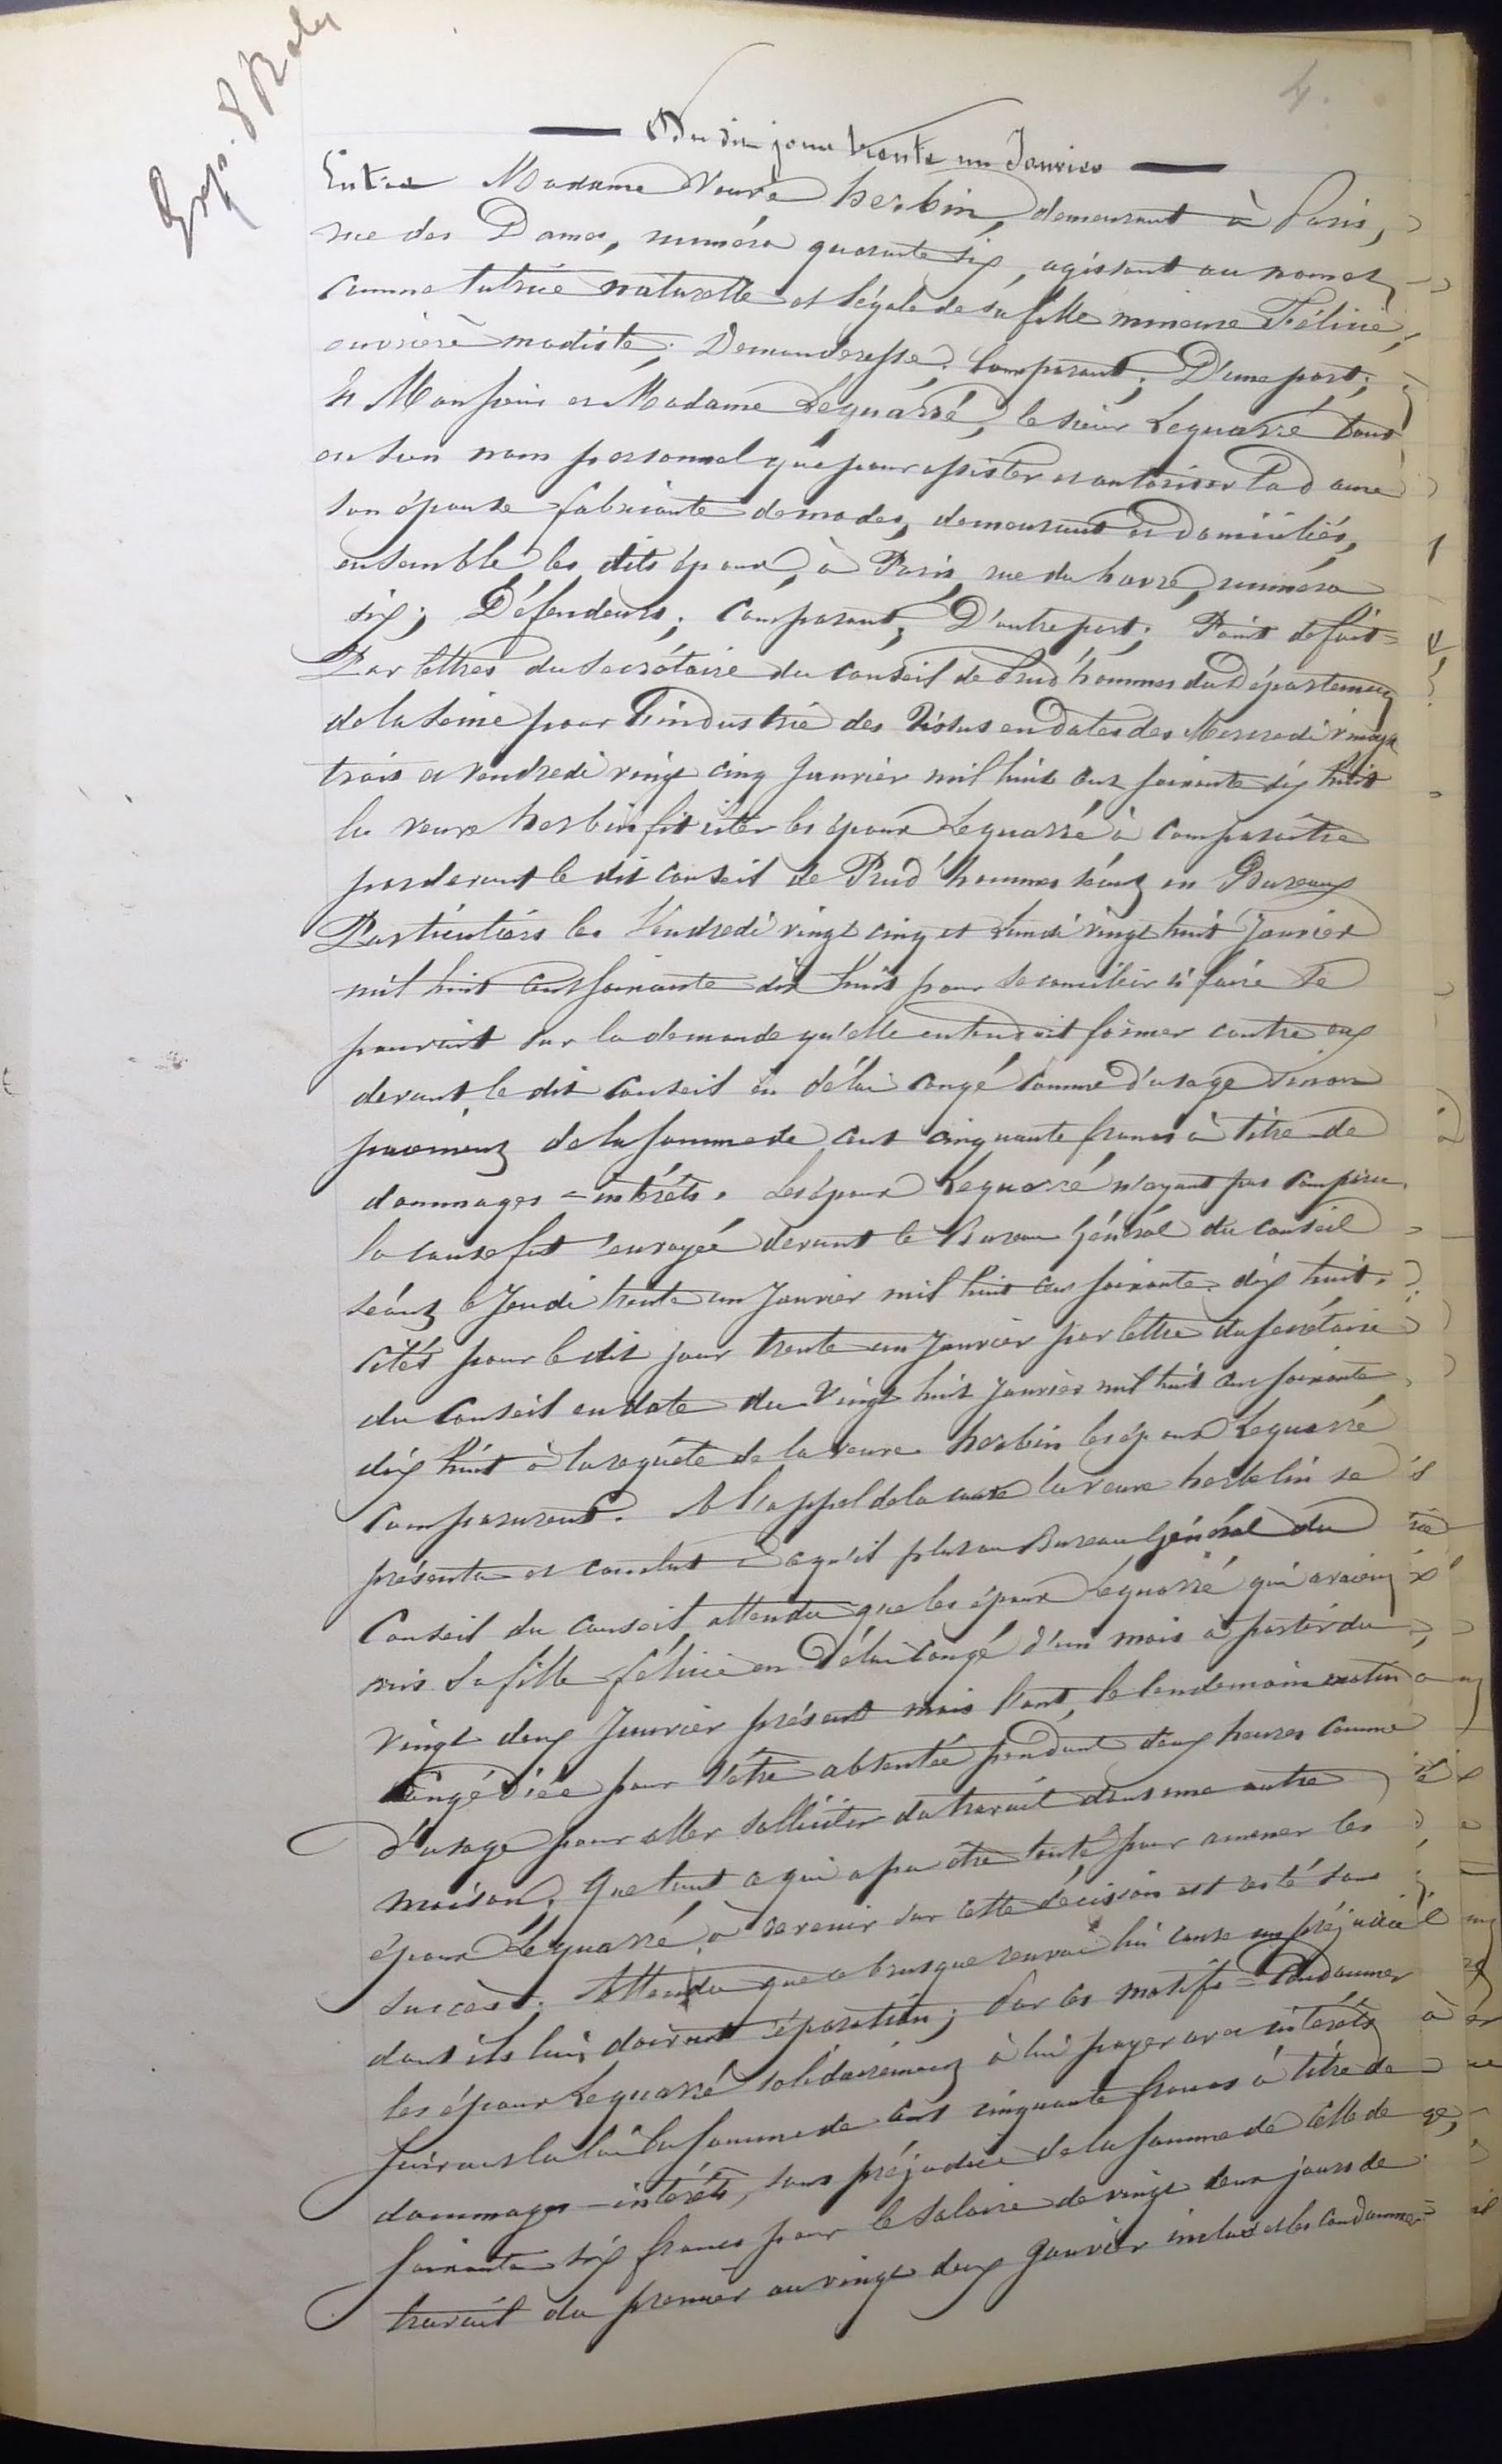 4.
Du dit jour trente un Janvier
Entre Madame Veuve herbin, demeurant à Paris,
rue des Dames, numéro quarante six, agissant au nom et
comme tutrice naturelle et légale de sa fille mineure Félicie,
ouvrière modiste; Demanderesse; Comparant; D'une part;
Et Monsieur et Madame Lequarré, le sieur Lequarré tant
en son nom personnel que pour assister et autoriser la dame
son épouse fabricante de modes, demeurant et domiciliés,
ensemble les dits époux, à Paris, rue du havre, numéro
six; Défendeurs; Comparant; D'autre part; Point de fait =
Par lettres du secrétaire du Conseil de Prud'hommes du Département
de la Seine pour l'industrie des Tissus en dates des Mercredi vingt
trois et Vendredi vingt cinq Janvier mil huit cent soixante dix huit
la veuve herbin fit citer les époux Lequarré à comparaître
pardevant le dit Conseil de Prud'hommes séant en Bureaux
Particuliers les Vendredi vingt cinq et Lundi vingt huit Janvier
mil huit cent soixante dix huit pour se concilier si faire se
pouvait sur la demande qu'elle entendait former contre eux
devant le dit Conseil en délai congé comme d'usage sinon
paiement de la somme de cent cinquante francs à titre de
dommages = intérêts. Les époux Lequarré n'ayant pas comparu
la cause fut renvoyée devant le Bureau Général du conseil
séant le Jeudi trente un Janvier mil huit cent soixante dix huit.
Cités pour le dit jour trente un Janvier par lettre du secrétaire
du Conseil en date du vingt huit Janvier mil huit cent soixante
dix huit à la requête de la veuve herbin les époux Lequarré
comparurent. A l'appel de la cause la veuve herbelin se
présenta et conclut à ce qu'il plut au Bureau Général du
Conseil du conseil attendu que les époux Lequarré qui avaient
mis sa fille Félicie en Délai congé d'un mois à partir du
vingt deux Janvier présent mois l'ont, le lendemain matin
congédiée pour s'être absentée pendant deux heures comme
d'usage pour aller solliciter du travail dans une autre
maison; Que tout ce qui a pu être tenté pour amener les
époux Lequarré à revenir sur cette décision est resté sans
succès; Attendu que ce brusque renvoi lui cause un préjudice
dont ils lui doivent réparation; Par ces motifs = Condamner
les époux Lequarré solidairement à lui payer avec intérêts
suivant la loi la somme de cent cinquante francs à titre de
dommages = intérêts, sans préjudice de la somme de celle de
soixante six francs pour le salaire de vingt deux jours de
travail du premier au vingt deux Janvier inclus et les condamner